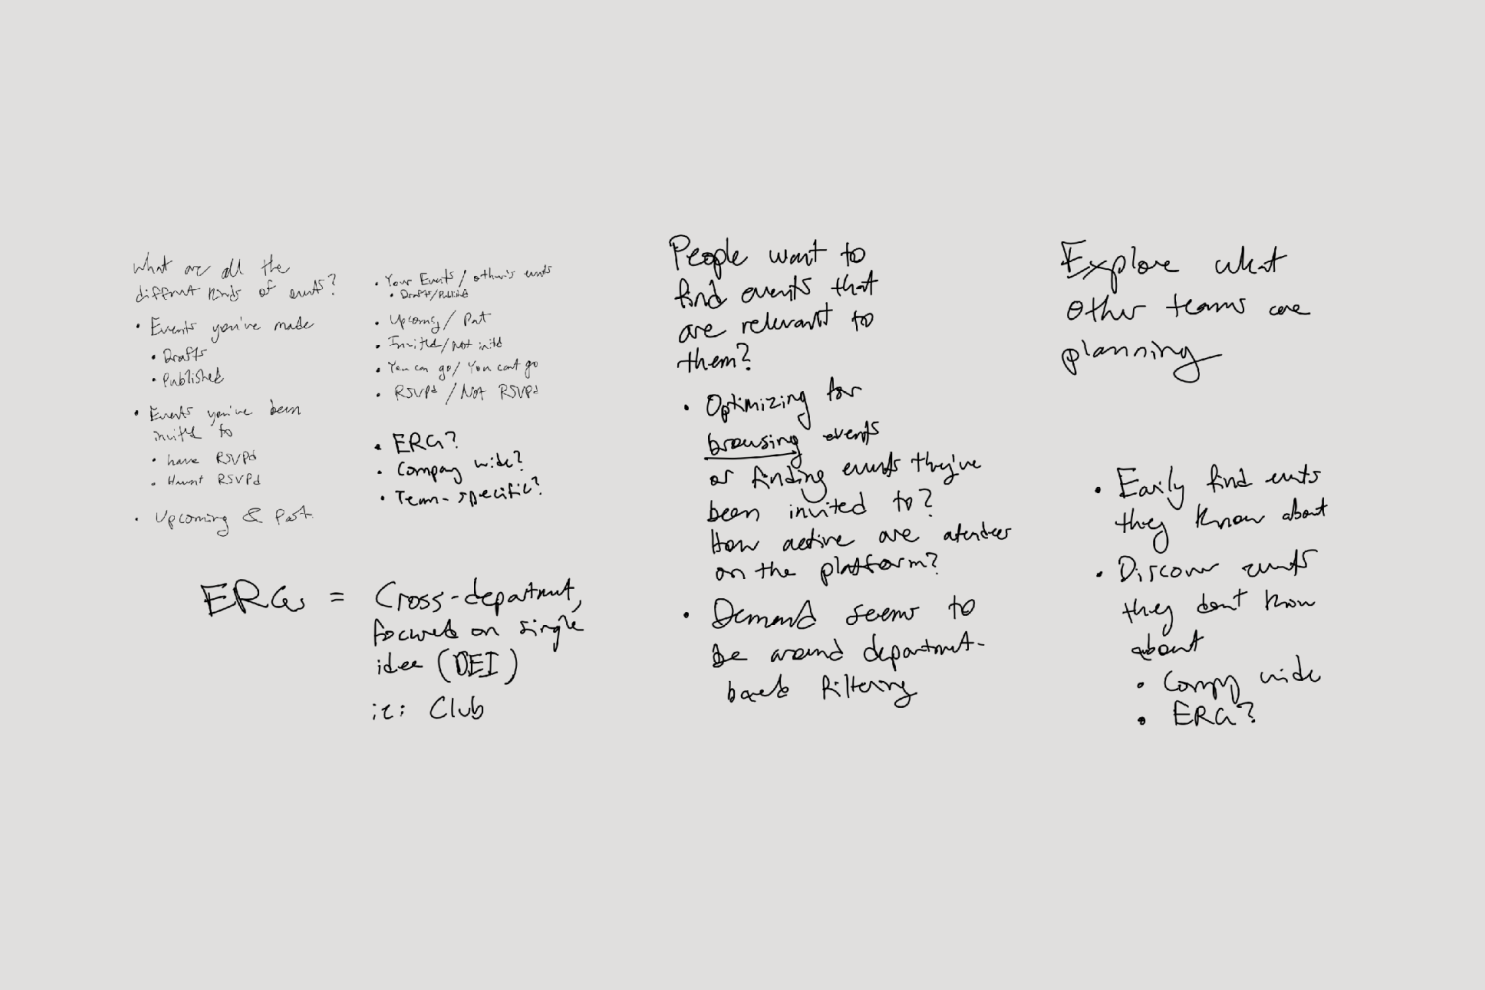 What are all the
different kinds of events?
• Events you've made
• Drafts
• Published
• Events you've been
invited to
• have RSVPd
• Havent RSVPd
• Upcoming & Past
• Your Events / other's events
• Drafts/Published
• Upcoming / Past
• Invited/not invited
• You can go/ You cant go
• RSVPd / Not RSVPd
• ERG?
• Company wide?
• Team-specific?
ERGs = Cross-department,
focused on single
idea (DEI)
i.e: Club
People want to
find events that
are relevant to
them?
• Optimizing for
browsing events
or finding events they've
been invited to?
How active are atendees
on the platform?
• Demand seems to
be around department-
based filtering
Explore what
other teams are
planning
• Easily find events
they know about
• Discover events
they don't know
about
• Company wide
• ERG?